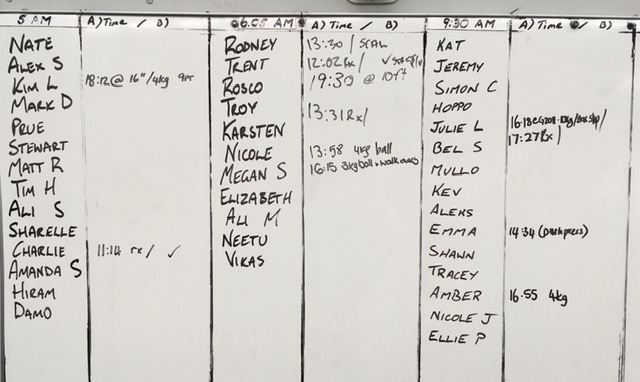 5 AM A) Time / B)
NATE
ALEX S
KIM L 18:12@ 16"/4kg 9pr
MARK D
PRUE
STEWART
MATT R
TIM H
ALI S
SHARELLE
CHARLIE 11:14 rx/ ✓
AMANDA S
HIRAM
DAMO
06.05 AM A) Time / B)
RODNEY 13:30 / SCAW
TRENT 12:02 Rx / ✓
ROSCO 19:30 @ 10ft
TROY 13:31 Rx/
KARSTEN
NICOLE 13:58 4kg ball
MEGAN S 16:15 3kg ball + walk outs
ELIZABETH
ALI M
NEETU
VIKAS
9:30 AM A) Time / B)
KAT
JEREMY
SIMON C
HOPPO
JULIE L 16:18
BEL S 17:27 Rx/
MULLO
KEV
ALEKS
EMMA 14:34
SHAWN
TRACEY
AMBER 16:55 4kg
NICOLE J
ELLIE P